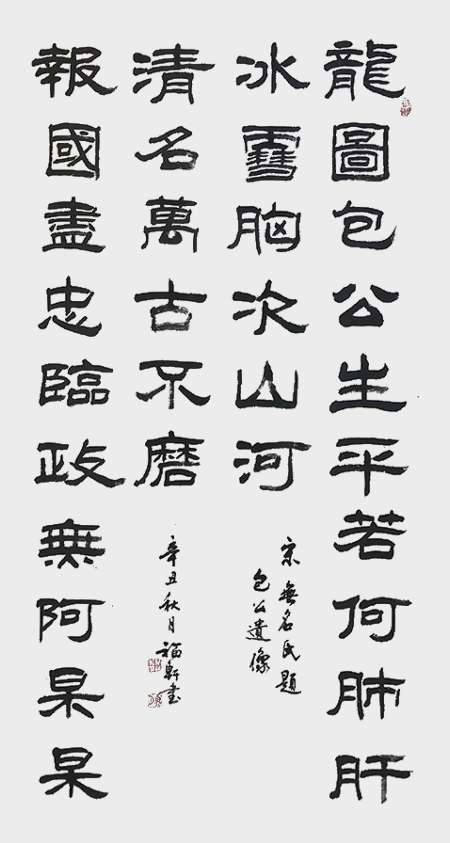 龍圖包公生平若何肺肝
冰雪胸次山河
宋無名氏題
包公遺像
報國盡忠臨政無阿杲杲
清名萬古不磨
辛丑秋月
福軒書